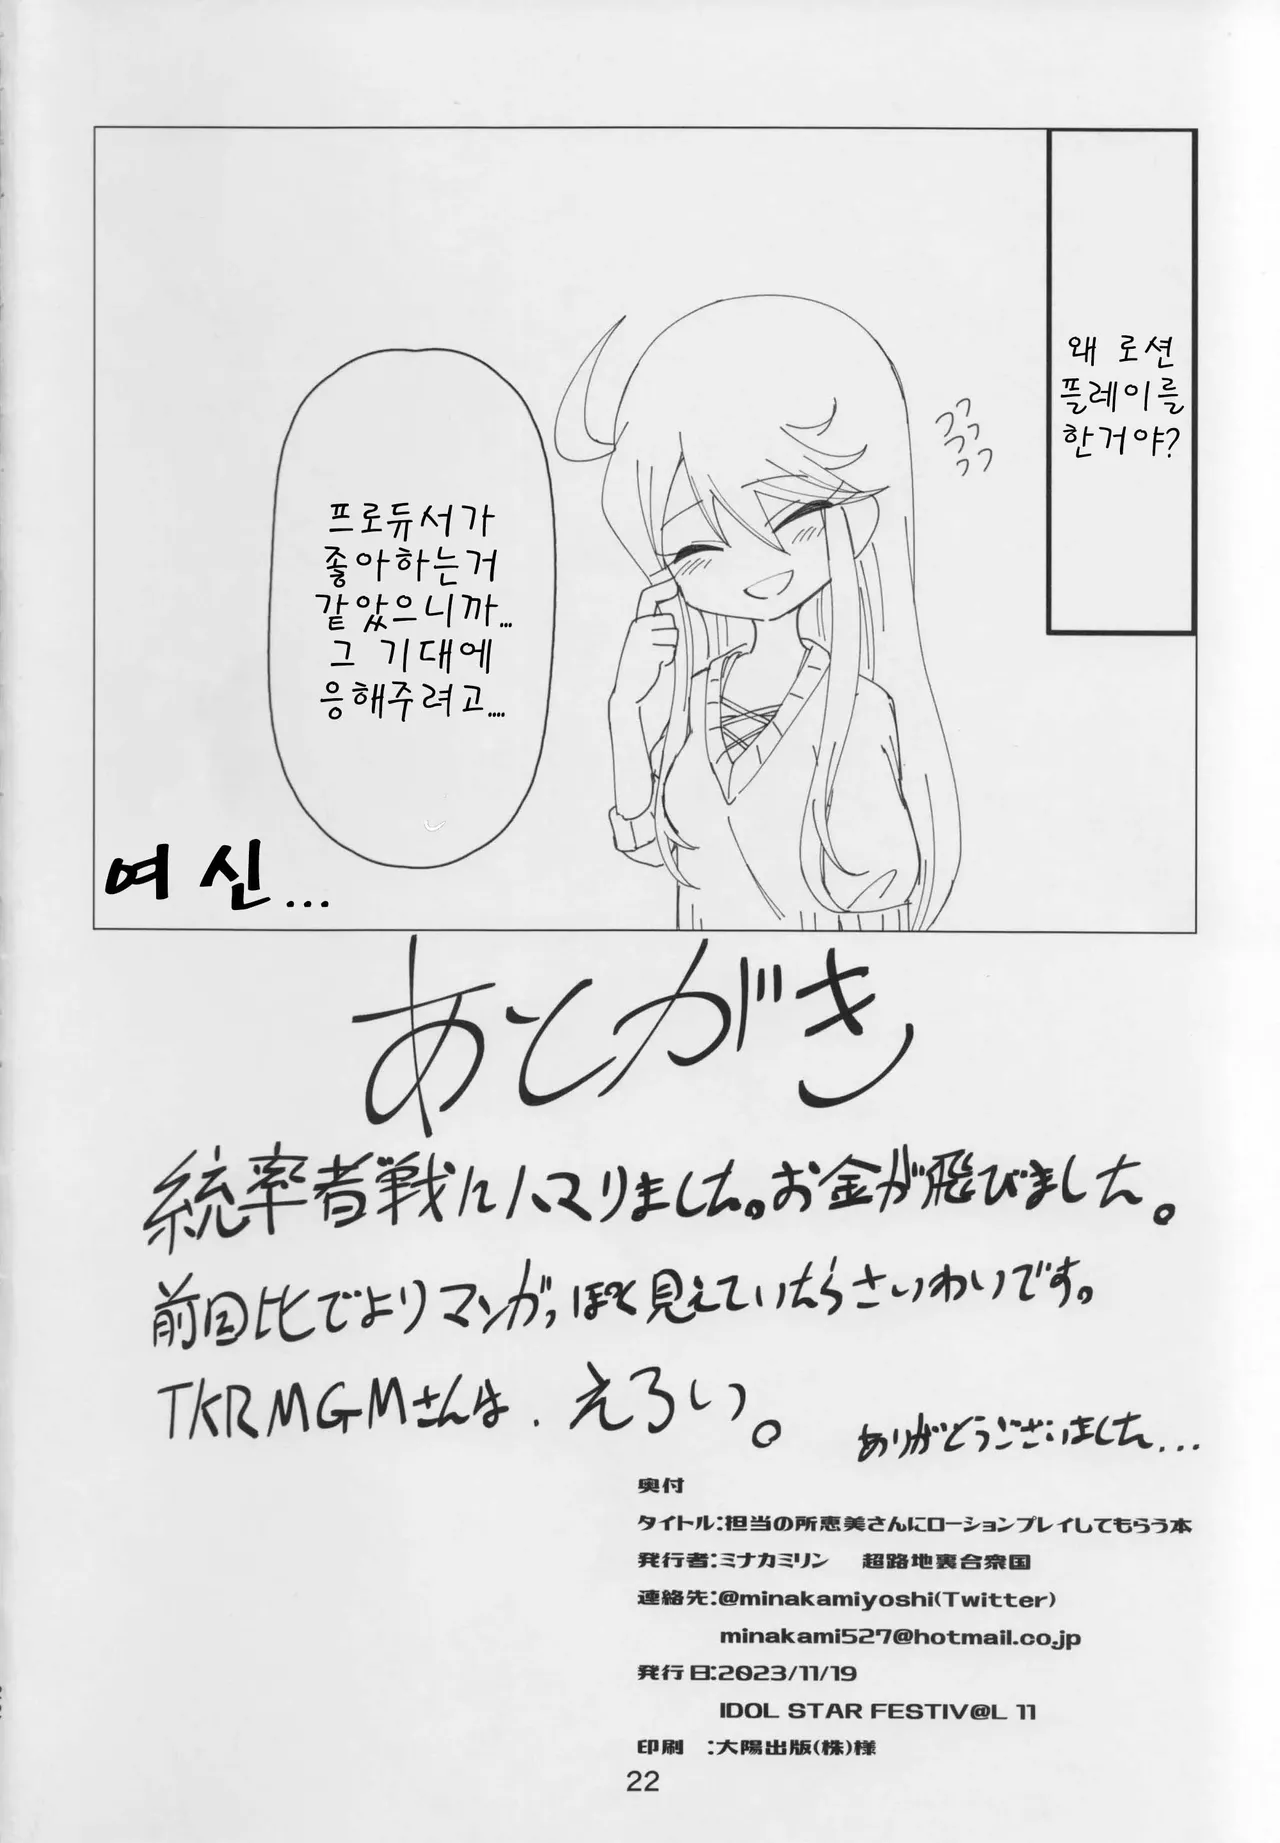 왜 로션
플레이를
한거야?
프로듀서가
좋아하는거
같았으니까...
그 기대에
응해주려고....
여신...
あとがき
統率者戦にハマりました。お金が飛びました。
前回比でよりマンガっぽく見えていたらさいわいです。
TKRMGMさんは、えろい。
ありがとうございました...
奥付
タイトル:担当の所恵美さんにローションプレイしてもらう本
発行者:ミナカミリン 超路地裏合衆国
連絡先:@minakamiyoshi(Twitter)
minakami527@hotmail.co.jp
発行日:2023/11/19
IDOL STAR FESTIV@L 11
印刷 :大陽出版(株)様
22